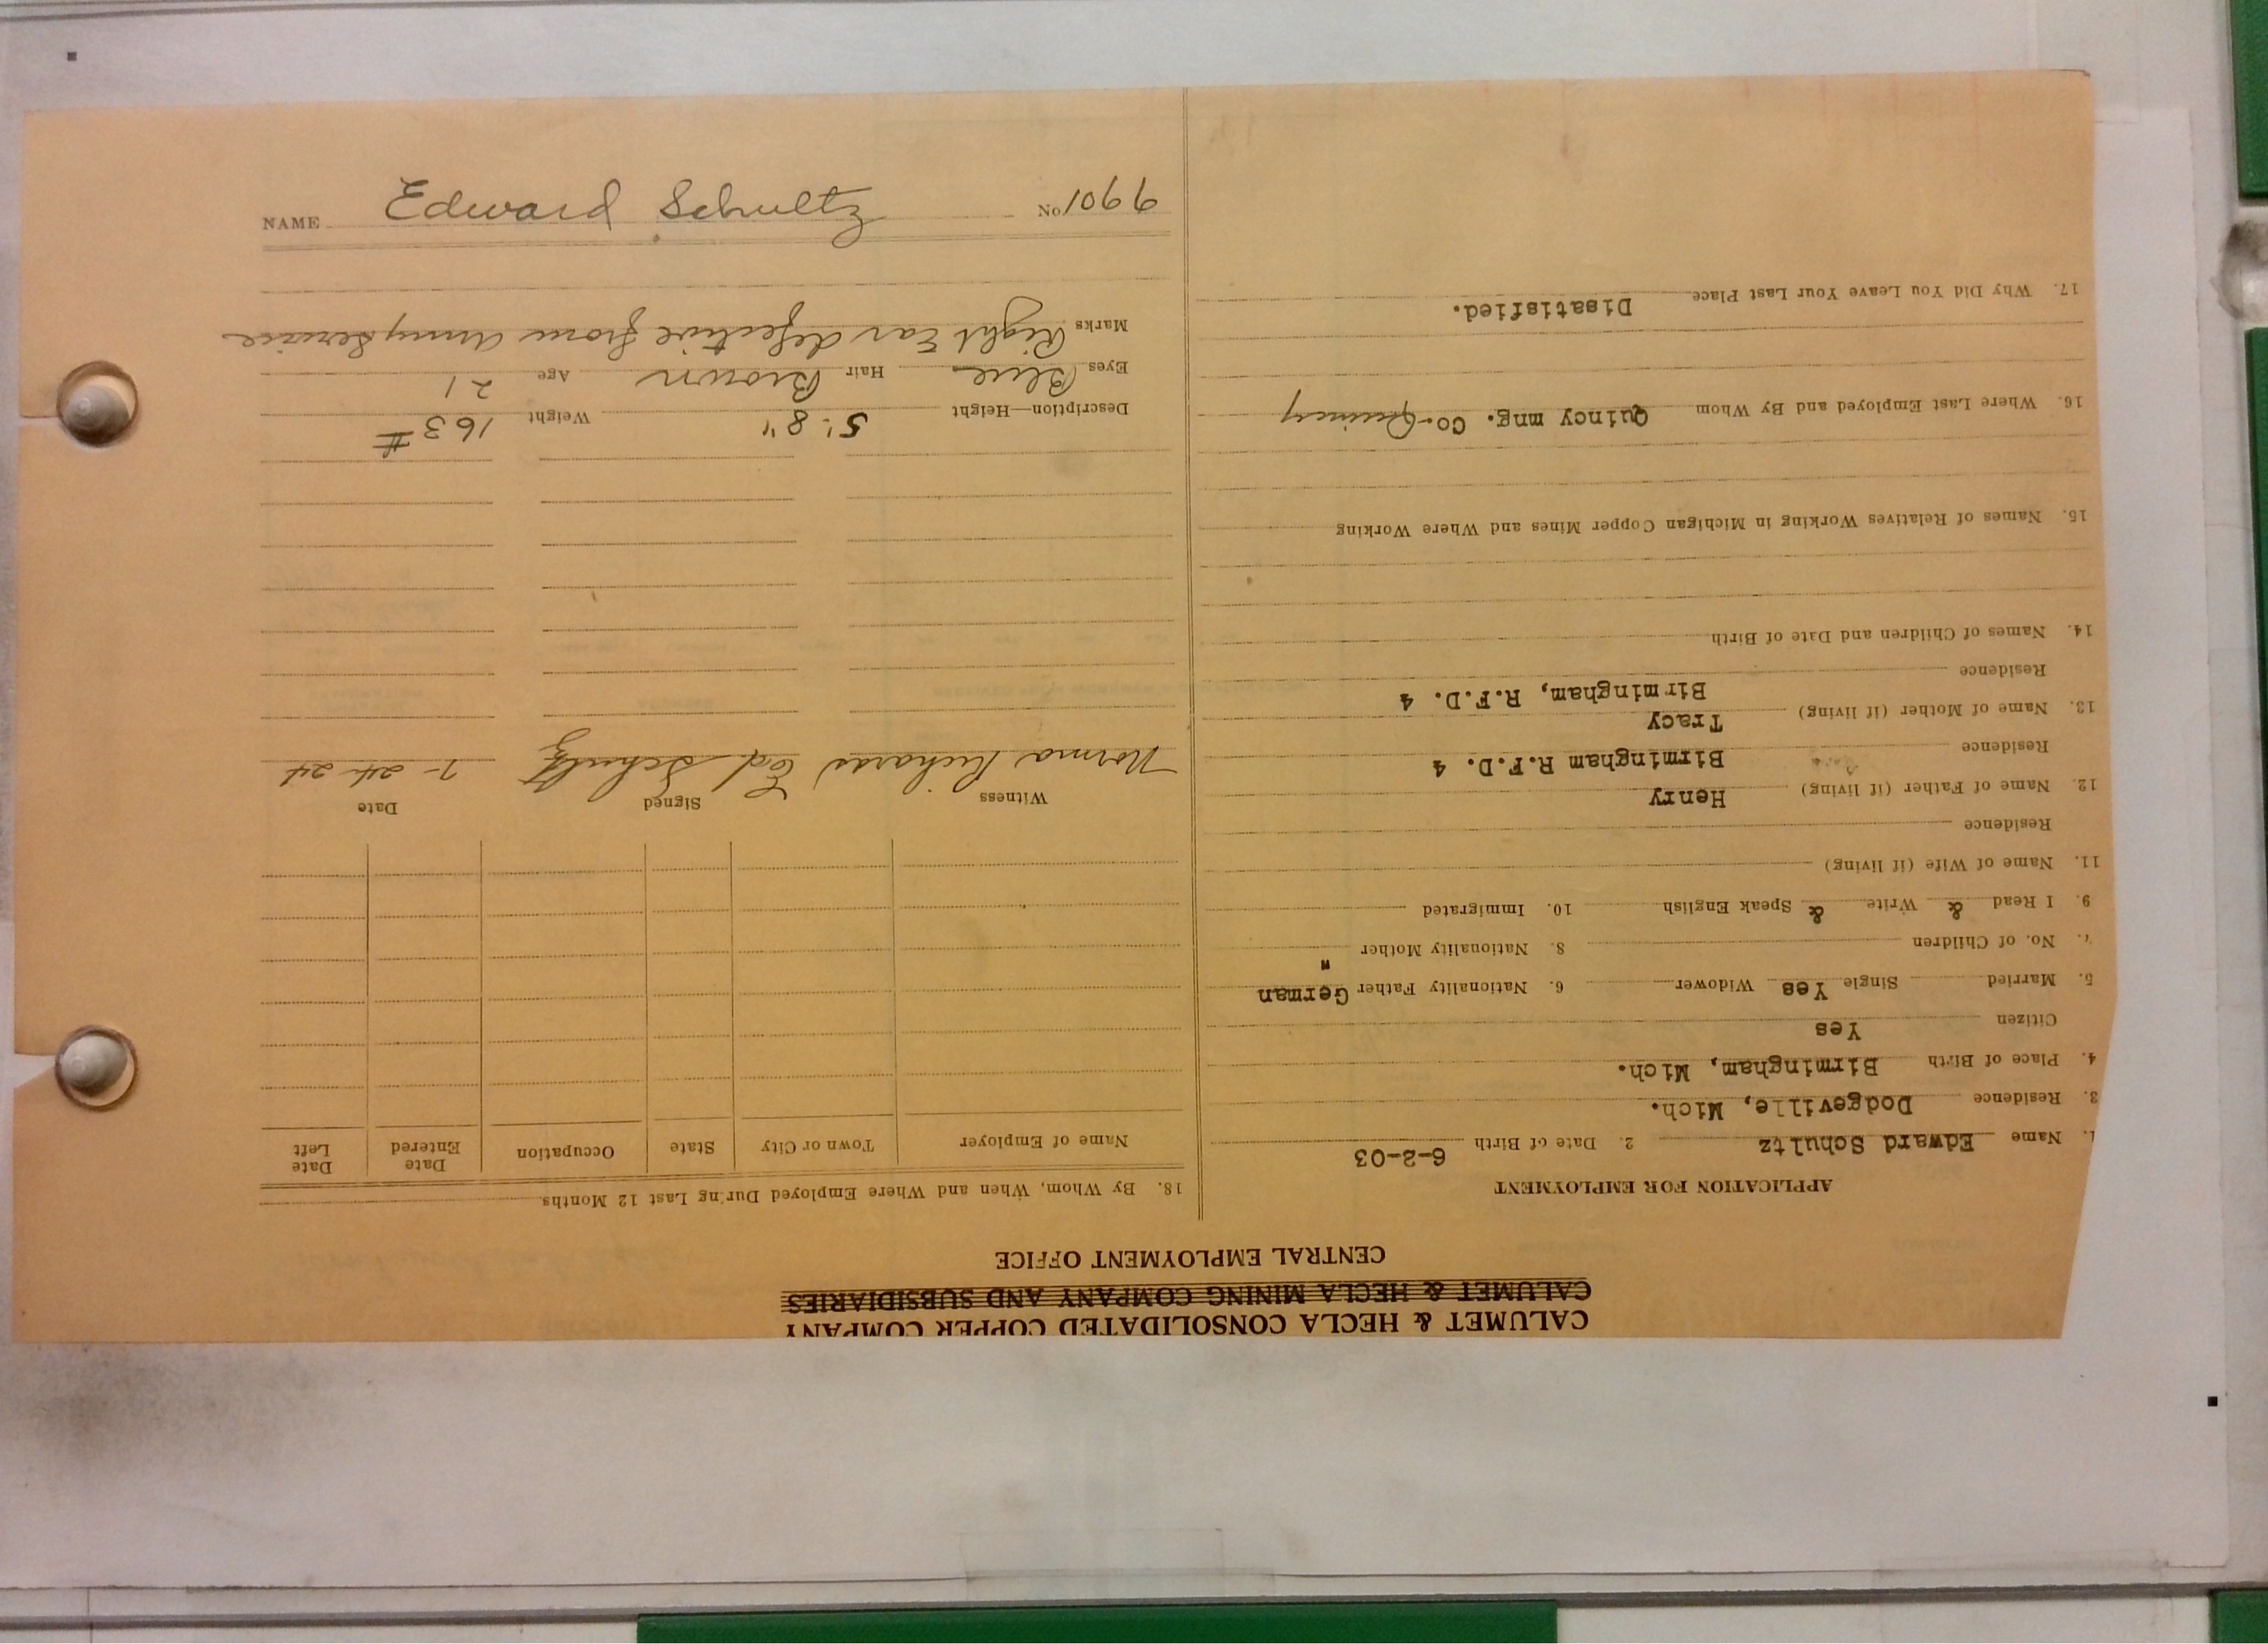 CALUMET & HECLA CONSOLIDATED COPPER COMPANY
CALUMET & HECLA MINING COMPANY AND SUBSIDIARIES
CENTRAL EMPLOYMENT OFFICE
APPLICATION FOR EMPLOYMENT
1. Name Edward Schultz 2. Date of Birth 6-2-03
3. Residence Dodgeville, Mich.
4. Place of Birth Birmingham, Mich.
Citizen Yes
5. Married Single Yes Widower 6. Nationality Father German
7. No. of Children 8. Nationality Mother "
9. I Read & Write & Speak English 10. Immigrated
11. Name of Wife (if living)
Residence
12. Name of Father (if living) Henry
Residence Birmingham R.F.D. 4
13. Name of Mother (if living) Tracy
Residence Birmingham, R.F.D. 4
14. Names of Children and Date of Birth
15. Names of Relatives Working in Michigan Copper Mines and Where Working
16. Where Last Employed and By Whom Quincy mng. Co.-Quincy
17. Why Did You Leave Your Last Place Disatisfied.
18. By Whom, When and Where Employed During Last 12 Months
Name of Employer Town or City State Occupation Date Entered Date Left
Witness Signed Date
Norma Richards Ed Schultz 7-24-24
Description—Height 5' 8" Weight 163#
Eyes Blue Hair Brown Age 21
Marks Right Ear defective from Army Service
NAME Edward Schultz No 1066